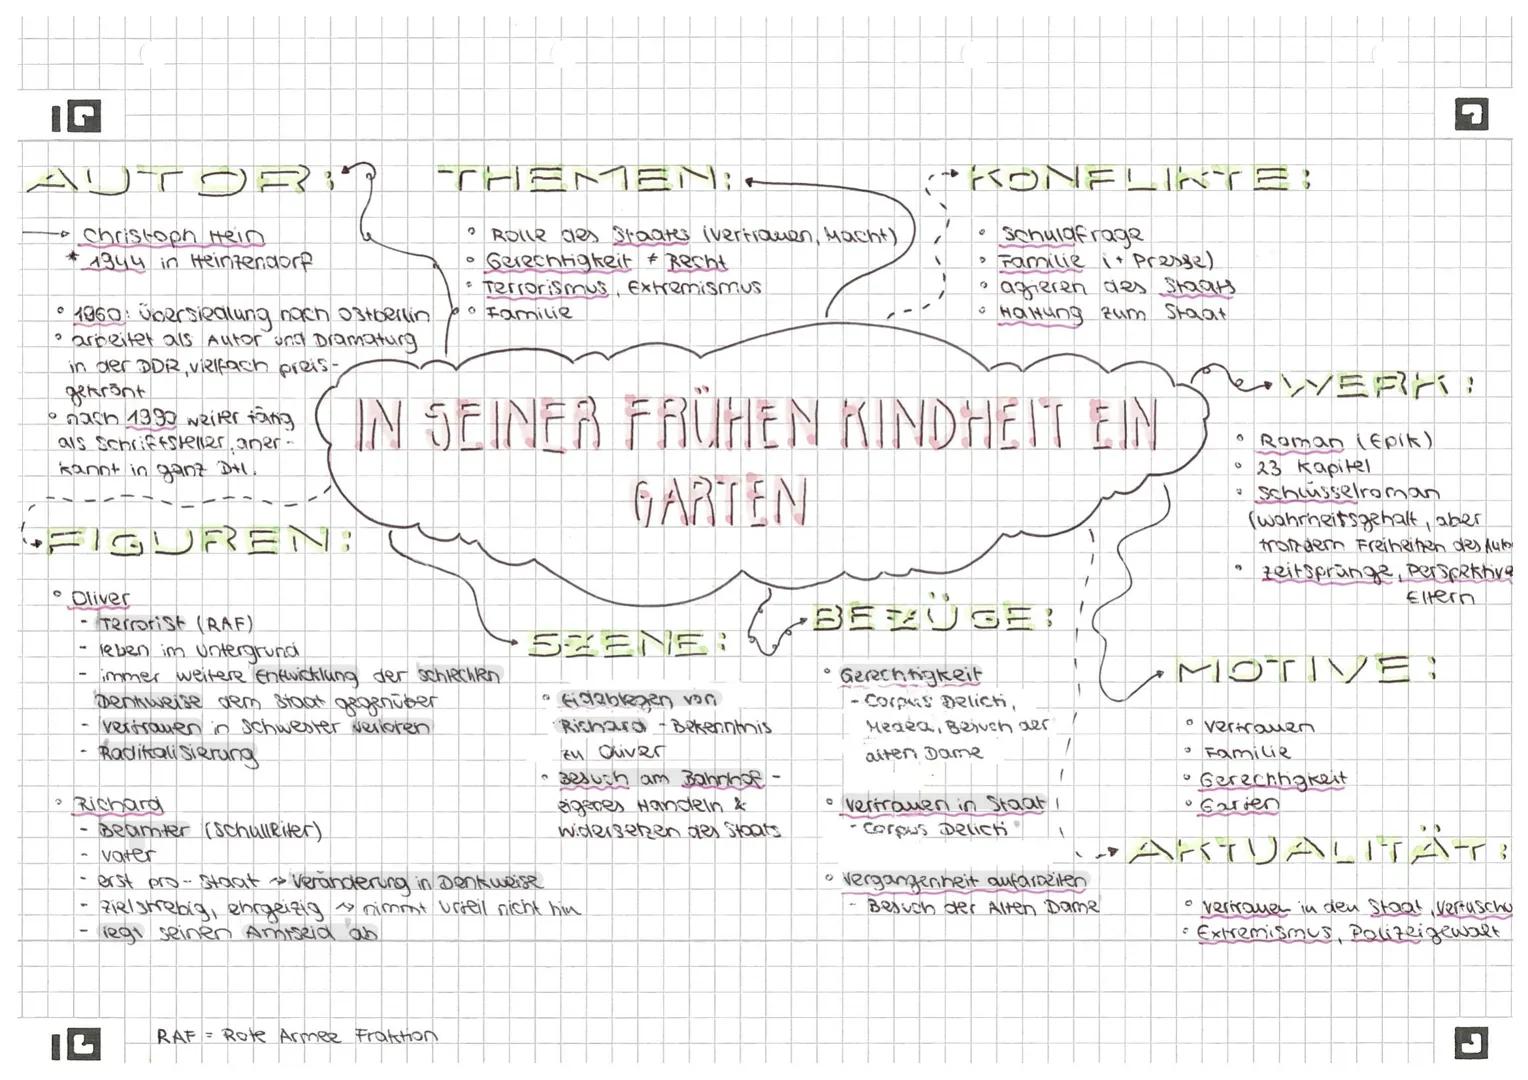 AUTOR:
→ Christoph Hein
* 1944 in Heinzendorf
° 1960: Übersiedlung nach Ostberlin
° arbeitet als Autor und Dramaturg
in der DDR, vielfach preis-
gekrönt
° nach 1990 weiter tätig
als Schriftsteller, aner-
kannt in ganz Dtl.
THEMEN:
° Rolle des Staates (Vertrauen, Macht)
° Gerechtigkeit ≠ Recht
° Terrorismus, Extremismus
° Familie
KONFLIKTE:
° Schuldfrage
° Familie (+ Presse)
° agieren des Staats
° Haltung zum Staat
IN SEINER FRÜHEN KINDHEIT EIN
GARTEN
WERK:
° Roman (Epik)
° 23 Kapitel
° Schlüsselroman
(Wahrheitsgehalt, aber
trotzdem Freiheiten des
° Zeitsprünge, Perspektive
Eltern
FIGUREN:
° Oliver
- Terrorist (RAF)
- leben im Untergrund
- immer weitere Entwicklung der schlechten
Denkweise dem Staat gegenüber
- Vertrauen in Schwester verloren
- Radikalisierung
° Richard
- Beamter (Schulleiter)
- Vater
- erst pro-Staat → Veränderung in Denkweise
- zielstrebig, ehrgeizig → nimmt Urteil nicht hin
- legt seinen Amtseid ab
SZENE:
° Eidablegen von
Richard - Bekenntnis
zu Oliver
° Besuch am Bahnhof -
eigenes Handeln &
widersetzen des Staats
BEZÜGE:
° Gerechtigkeit
- Corpus Delicti,
Medea, Besuch der
alten Dame
° Vertrauen in Staat
- Corpus Delicti
° Vergangenheit aufarbeiten
- Besuch der Alten Dame
MOTIVE:
° Vertrauen
° Familie
° Gerechtigkeit
° Garten
AKTUALITÄT:
° Vertrauen in den Staat,
° Extremismus, Polizeigewalt
RAF = Rote Armee Fraktion